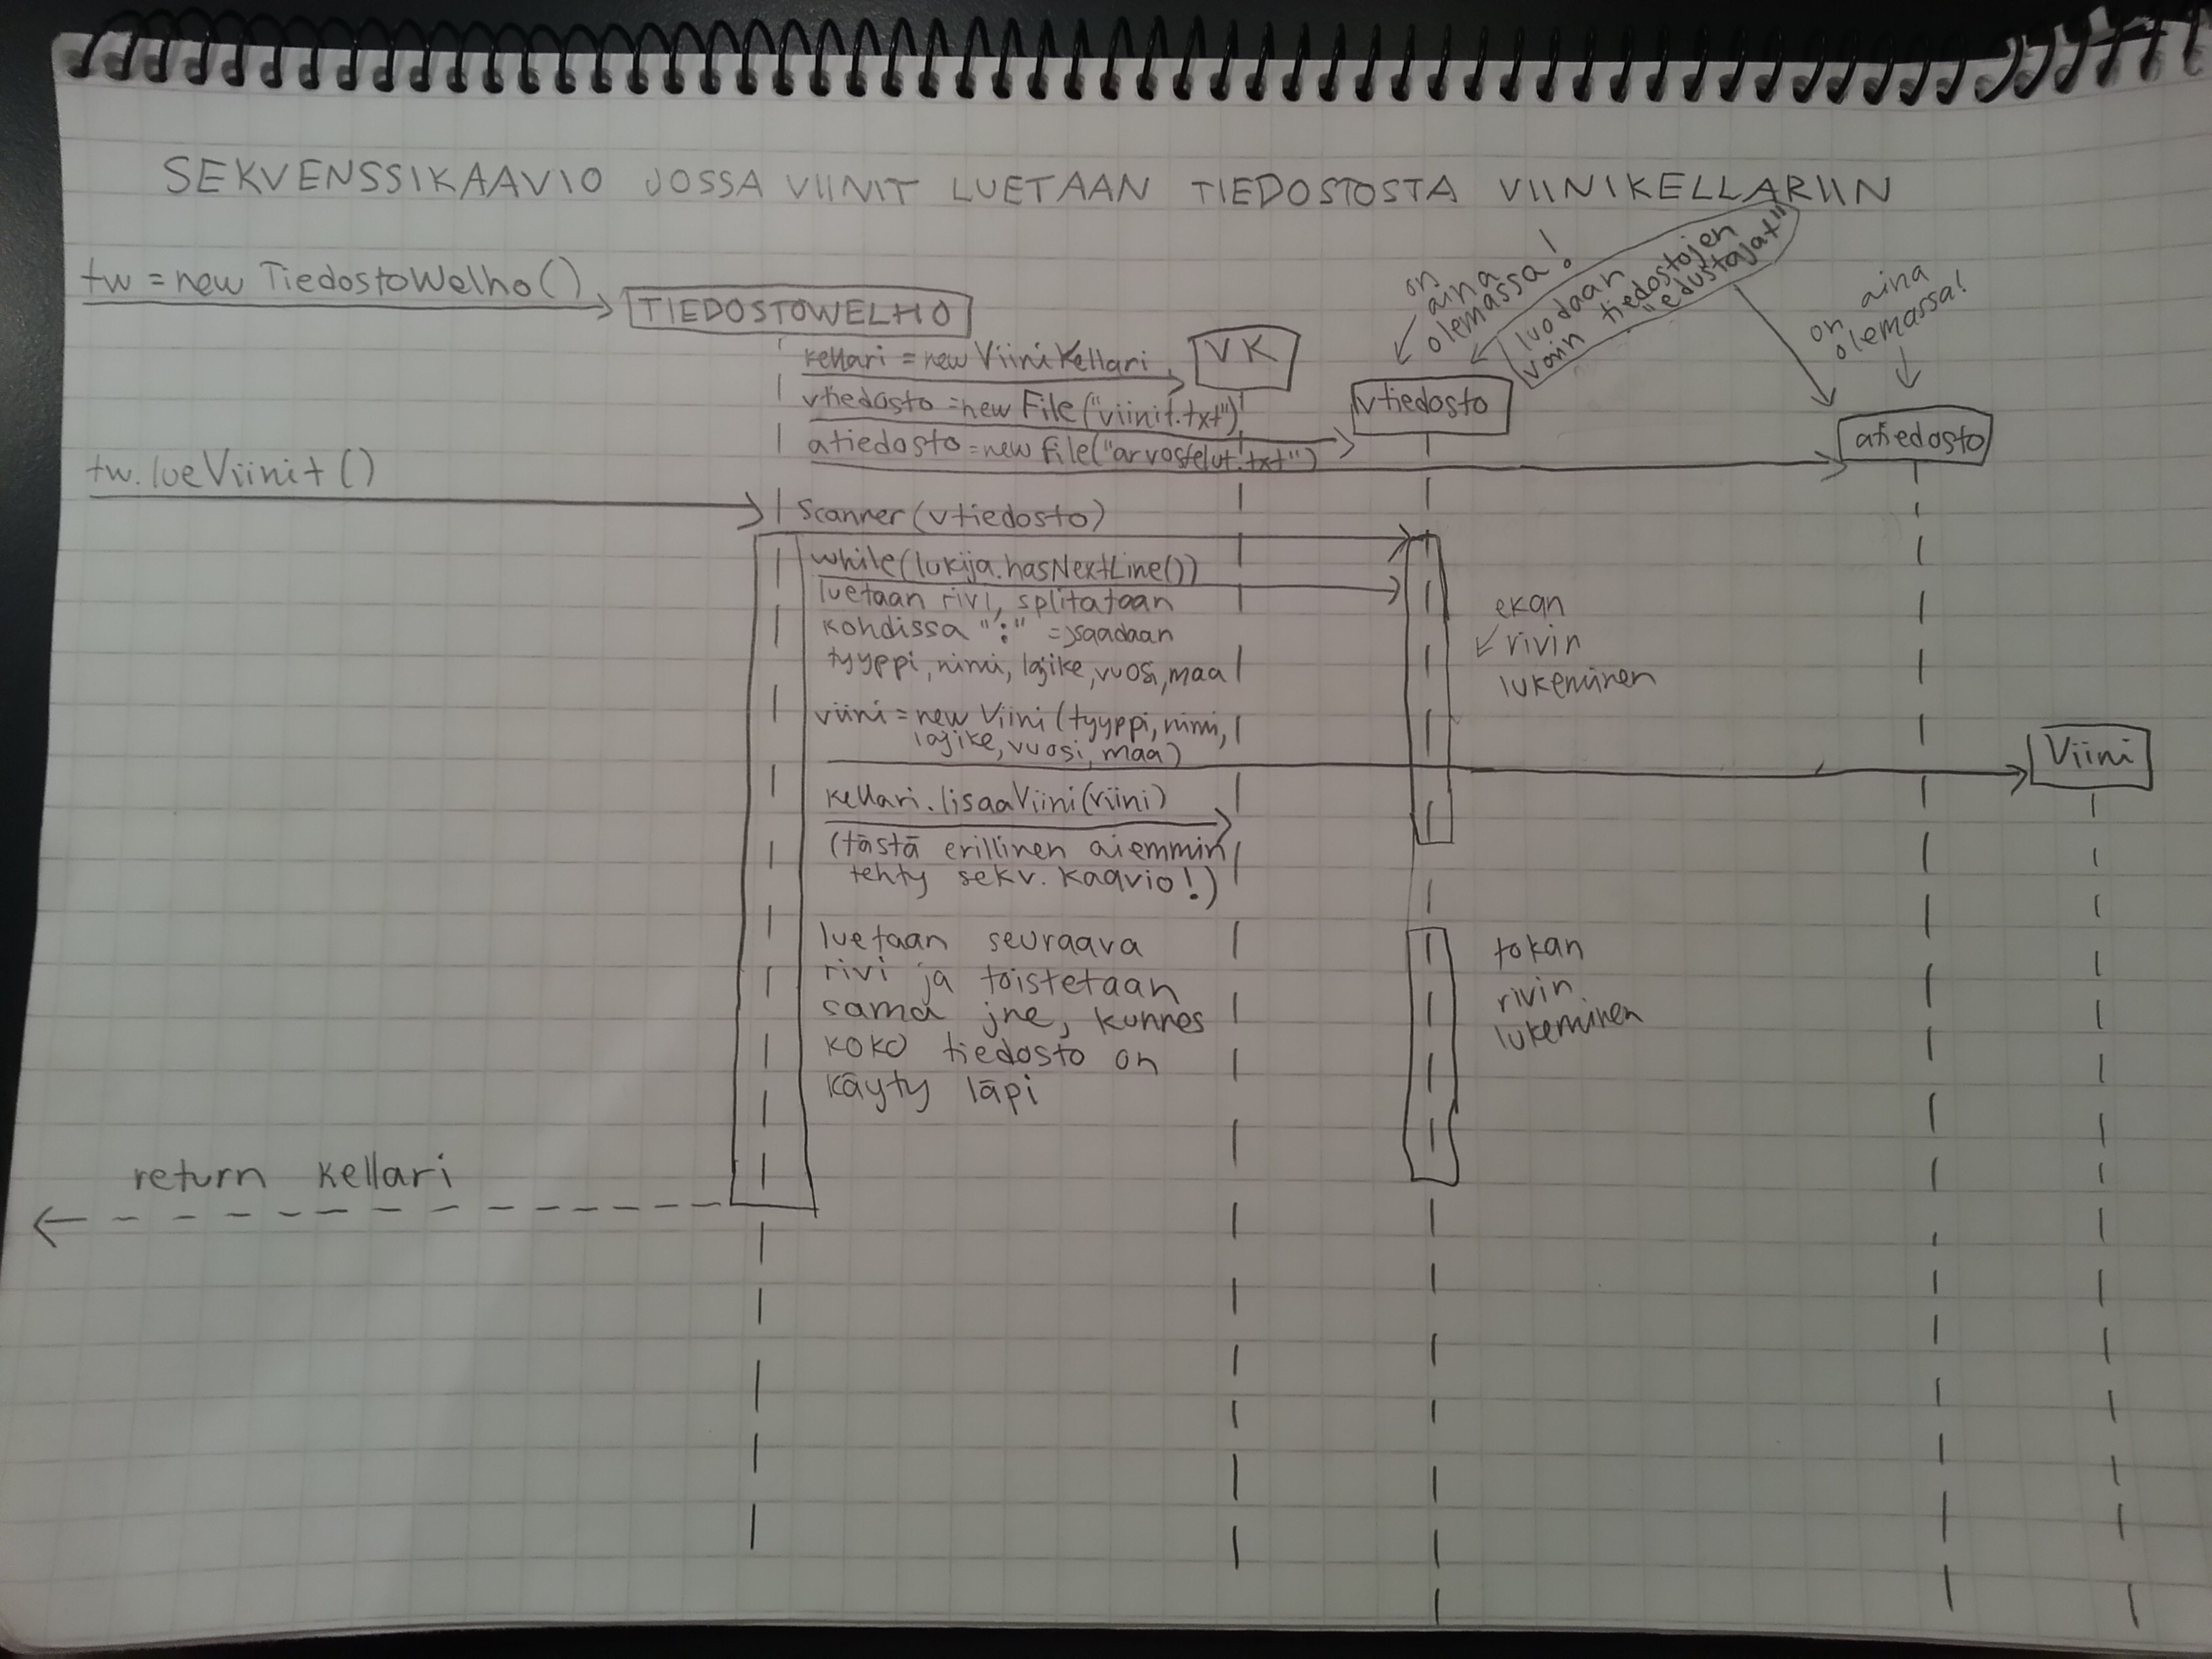 SEKVENSSIKAAVIO JOSSA VIINIT LUETAAN TIEDOSTOSTA VIINIKELLARIIN
tw = new TiedostoWelho()
TIEDOSTOWELHO
kellari = new ViiniKellari
VK
vtiedosto = new File("viinit.txt")
atiedosto = new file("arvostelut.txt")
on
aina
olemassa!
luodaan
vain tiedostojen
"edustajat"
vtiedosto
on aina
olemassa!
atiedosto
tw.lueViinit()
Scanner(vtiedosto)
while(lukija.hasNextLine())
luetaan rivi, splitataan
kohdissa ":" => saadaan
tyyppi, nimi, lajike, vuosi, maa
ekan
rivin
lukeminen
viini = new Viini (tyyppi, nimi,
lajike, vuosi, maa)
Viini
kellari.lisaaViini(viini)
(tästä erillinen aiemmin
tehty sekv. kaavio!)
luetaan seuraava
rivi ja toistetaan
sama jne, kunnes
koko tiedosto on
käyty läpi
tokan
rivin
lukeminen
return kellari